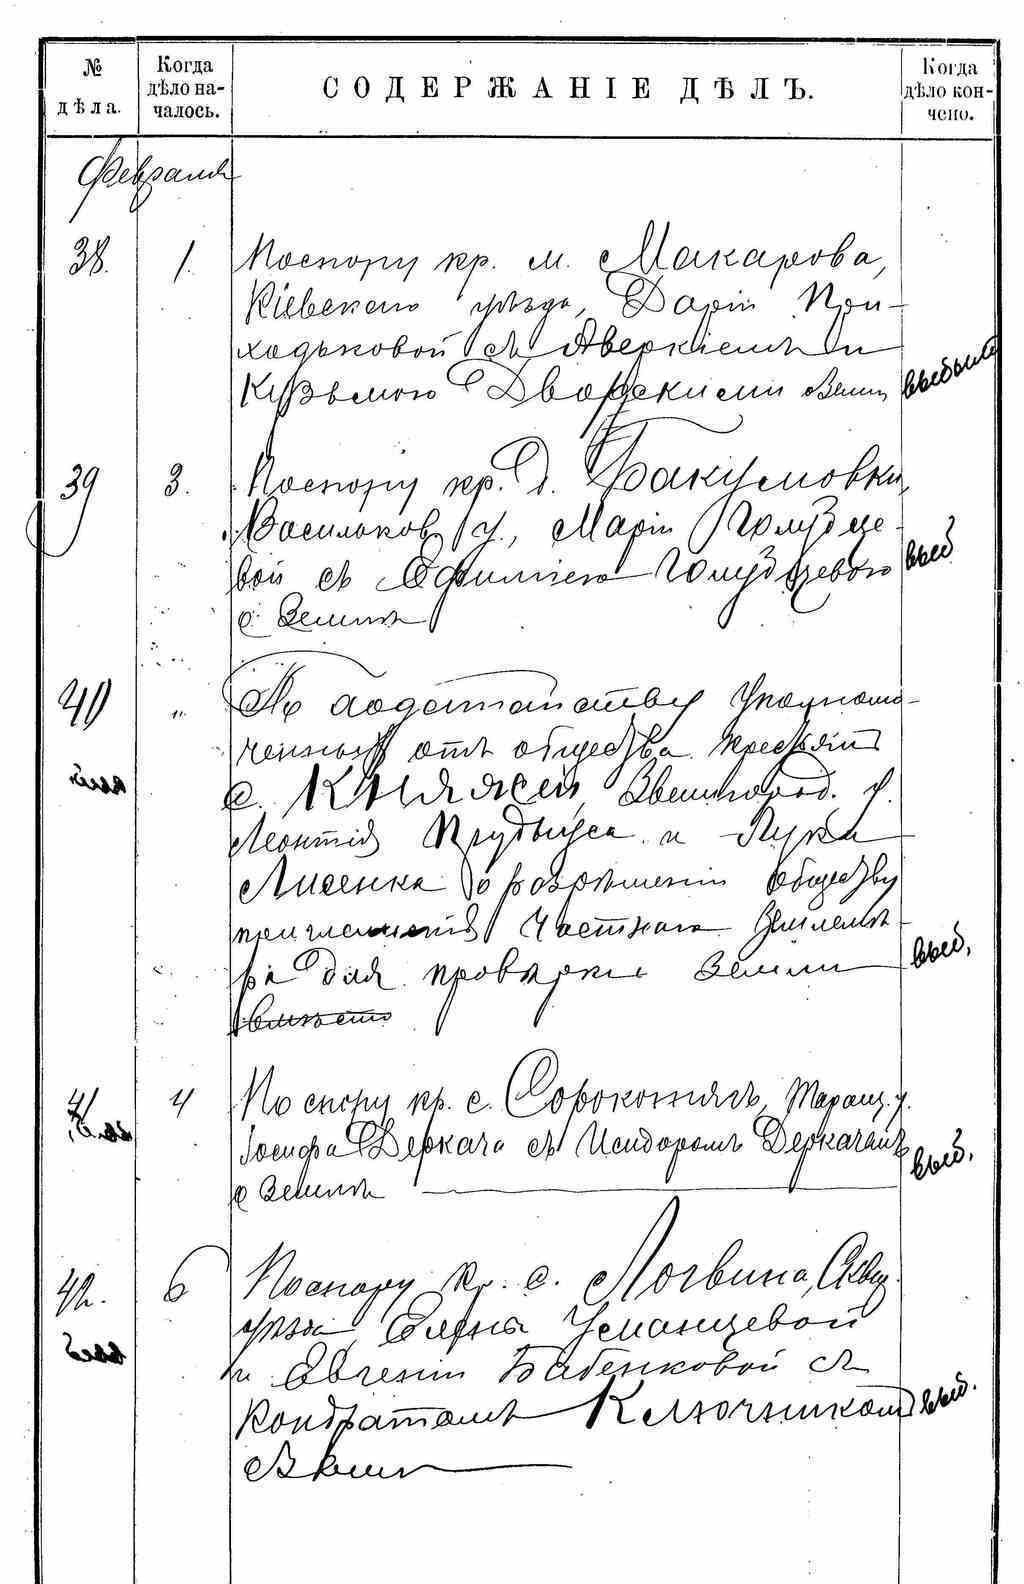 № дѣла.
Когда дѣло на-
чалось.
СОДЕРЖАНІЕ ДѢЛЪ.
Когда дѣло кон-
чено.
Февраля
38. 1. По спору кр. м. Макарова,
Кіевскаго уѣзда, Даріи При-
ходьковой съ Аверкіемъ и
Кузьмою Дворскими о земл
выбыло
39 3. По спору кр. д. Бакумовки,
Васильков. у., Маріи Голубце-
вой съ Ефиміею Голубцевою
о землѣ
выб
40 " По ходатайству Уполномо-
ченныхъ отъ общества крестьянъ
с. Княжей, Звенигород. у.
Леонтія и Луки
Лисенка о разрѣшеніи обществу
пригласить частнаго землемѣ-
ра для провѣрки земли
вмѣсто
выб.
41 4 По спору кр. с. Сорокотягъ, Таращ. у.
Іосифа Деркача съ Исидоромъ Деркачемъ
о землѣ
выб.
42. 6 По спору кр. с. Логвина, Сквир.
уѣзда Елены Уманцевой
и Евгеніи Бабенковой съ
Кондратомъ Ключникомъ
о земл
выб.